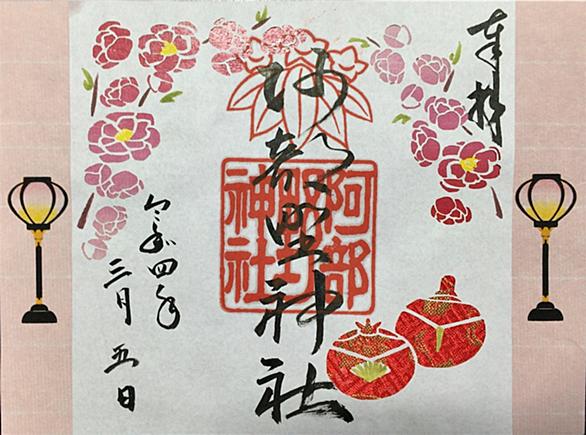 奉拝
阿部野神社
阿部野神社
令和四年
三月五日